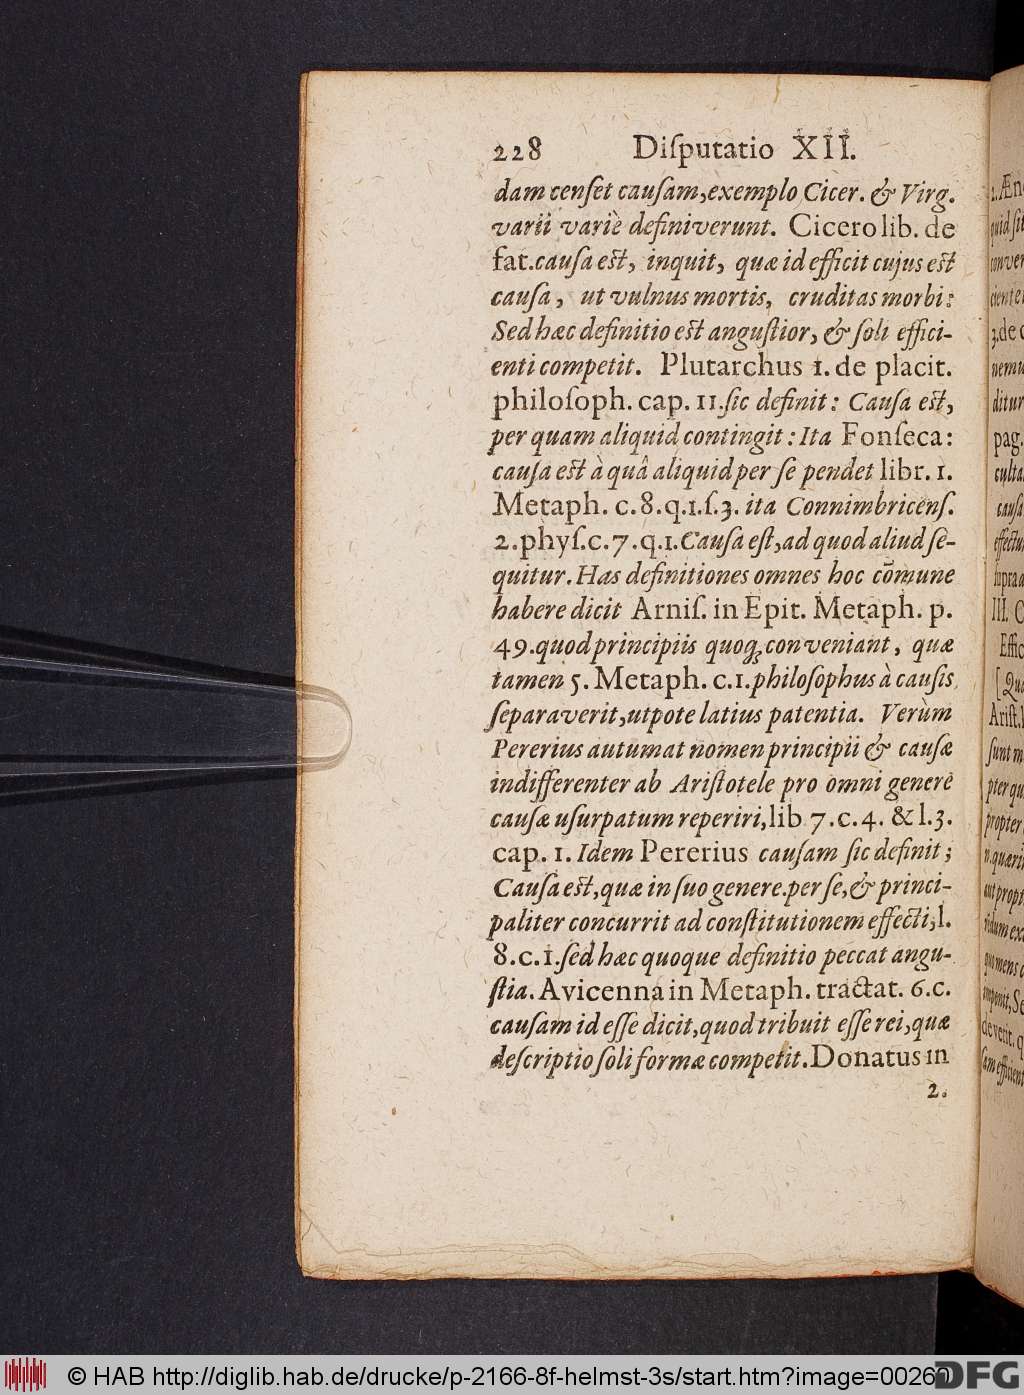 228 Diſputatio XII.
dam cenſet cauſam, exemplo Cicer. & Virg.
varii variè definiverunt. Cicero lib. de
fat. cauſa eſt, inquit, quæ id efficit cujus eſt
cauſa, ut vulnus mortis, cruditas morbi:
Sed hæc definitio eſt anguſtior, & ſoli effici-
enti competit. Plutarchus 1. de placit.
philoſoph. cap. 11. ſic definit: Cauſa eſt,
per quam aliquid contingit: Ita Fonſeca:
cauſa eſt à quâ aliquid per ſe pendet libr. 1.
Metaph. c. 8. q. 1. ſ. 3. ita Connimbricenſ.
2. phyſ. c. 7. q. 1. Cauſa eſt, ad quod aliud ſe-
quitur. Has definitiones omnes hoc cōmune
habere dicit Arniſ. in Epit. Metaph. p.
49. quod principiis quoq; conveniant, quæ
tamen 5. Metaph. c. 1. philoſophus à cauſis
ſeparaverit, utpote latius patentia. Verùm
Pererius autumat nomen principii & cauſæ
indifferenter ab Ariſtotele pro omni genere
cauſæ uſurpatum reperiri, lib 7. c. 4. & l. 3.
cap. 1. Idem Pererius cauſam ſic definit;
Cauſa eſt, quæ in ſuo genere. per ſe, & princi-
paliter concurrit ad conſtitutionem effecti, l.
8. c. 1. ſed hæc quoque definitio peccat angu-
ſtia. Avicenna in Metaph. tractat. 6. c.
cauſam id eſſe dicit, quod tribuit eſſe rei, quæ
deſcriptio ſoli formæ competit. Donatus in
2.
© HAB http://diglib.hab.de/drucke/p-2166-8f-helmst-3s/start.htm?image=00260
DFG